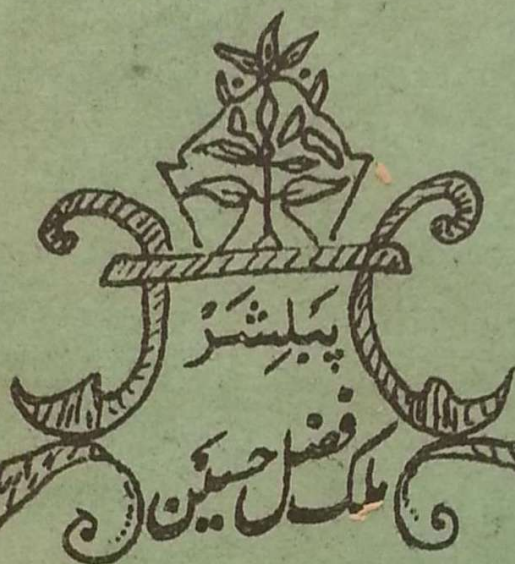 پَبلِشَرْ
ملک فضل حسین